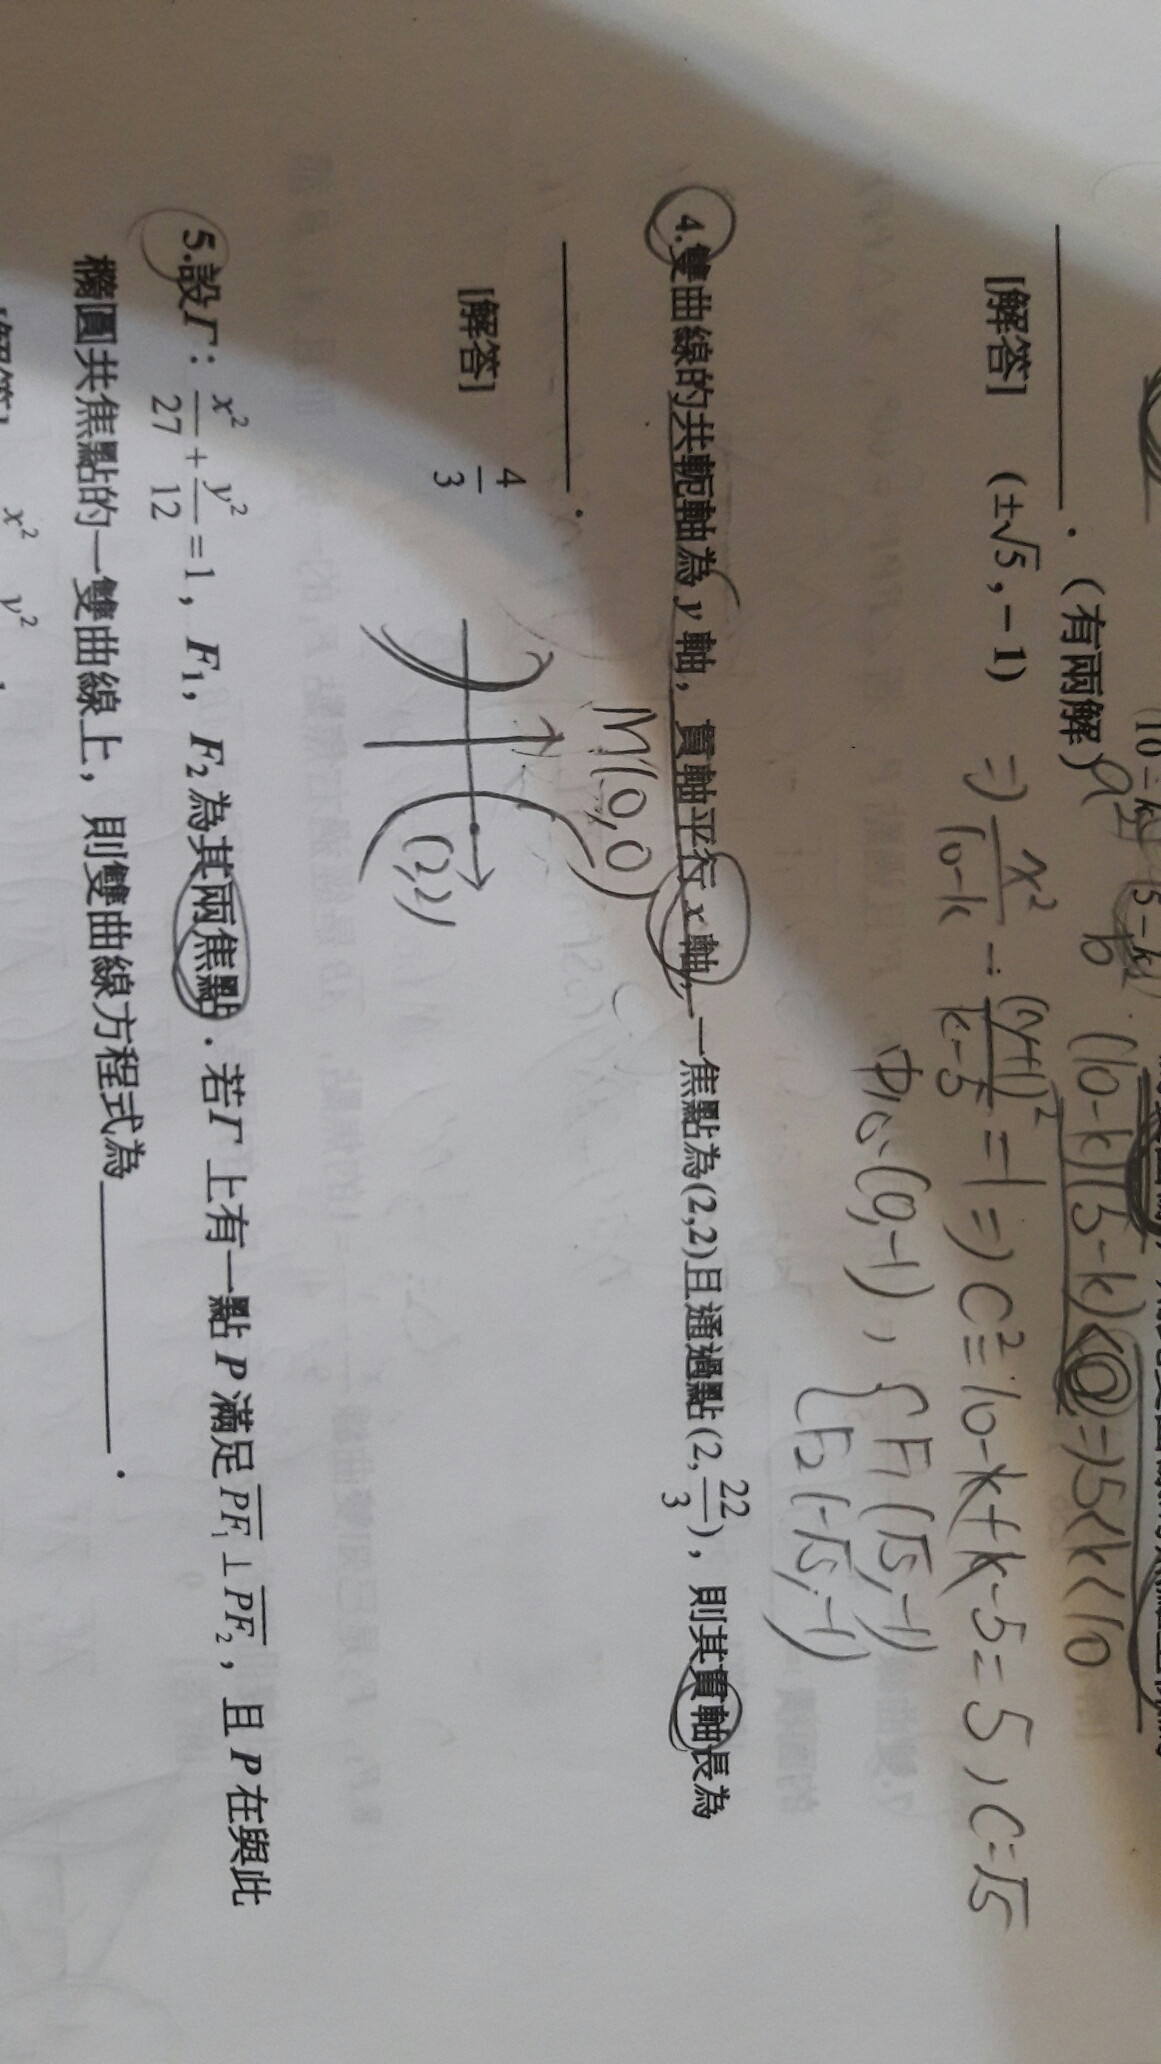 (有兩解)
(10-k)(5-k)<0 => 5<k<10
[解答] (±√5, -1) => x²/(10-k) - (y+1)²/(k-5) = 1 => C² = 10-k+k-5 = 5, C=√5
中心(0,-1), { F1(√5,-1)
F2(-√5,-1)
4.雙曲線的共軛軸為 y 軸, 貫軸平行 x 軸,一焦點為(2,2)且通過點(2, 22/3), 則其貫軸長為
________.
M(0,0)
[解答] 4/3
(2,2)
5.設Γ: x²/27 + y²/12 = 1, F₁, F₂為其兩焦點.若Γ上有一點 P 滿足 PF₁⊥PF₂, 且 P 在與此
橢圓共焦點的一雙曲線上, 則雙曲線方程式為________.
[解答] x² y²